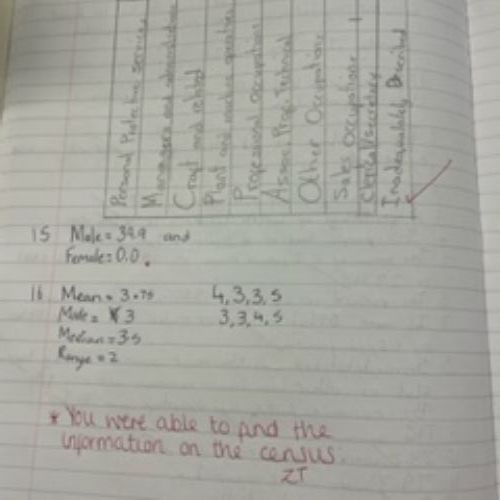 Personal Protective services
Managers and administration
Craft and related
Plant and machine operatives
Profesional occupations
Assoc. Prof. Technical
Other Occupations
Sales Occupations
Clerical/secretary
Inadequately Described
15 Male = 39.9 and
Female = 0.0.
16 Mean = 3.75 4,3,3,5
= 3 3,3,4,5
Median = 3.5
Range = 2
* You were able to find the
information on the census.
ZT